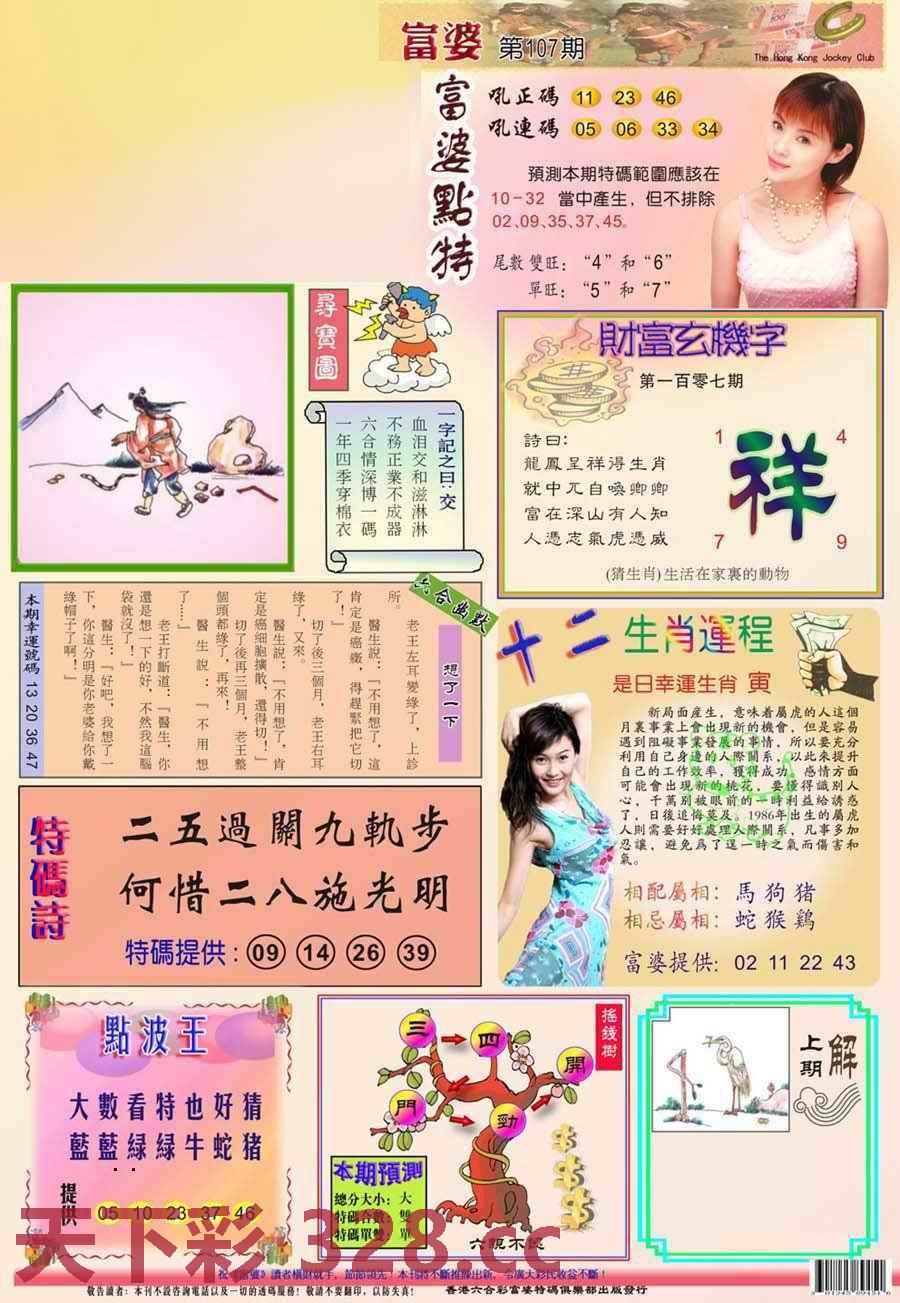 富婆 第107期
The Hong Kong Jockey Club
富婆點特
吼正碼 11 23 46
吼連碼 05 06 33 34
預測本期特碼範圍應該在
10-32 當中產生，但不排除
02、09、35、37、45。
尾數雙旺：“4”和“6”
單旺：“5”和“7”
尋寶圖
一字記之曰：交
血泪交和滋淋淋
不務正業不成器
六合情深博一碼
一年四季穿棉衣
財富玄機字
第一百零七期
詩曰：
龍鳳呈祥得生肖
就中兀自喚卿卿
富在深山有人知
人憑志氣虎憑威
1 4
祥
7 9
(猜生肖)生活在家裏的動物
六合幽默
想了一下
老王左耳變綠了，上診
所。
醫生說：『不用想了，這
肯定是癌癥，得趕緊把它切
了！』
切了後三個月，老王右耳
綠了，又來。
醫生說：『不用想了，肯
定是癌細胞擴散，還得切！』
切了後再三個月，老王整
個頭都綠了，再來！
醫生說：『不用想
了....』
老王打斷道：『醫生，你
還是想一下的好，不然我這腦
袋就沒了！』
醫生：『好吧，我想了一
下，你這分明是你老婆給你戴
綠帽子了啊！』
本期幸運號碼 13 20 36 47
十二生肖運程
是日幸運生肖 寅
新局面産生，意味着屬虎的人這個
月裏事業上會出現新的機會，但是容易
遇到阻礙事業發展的事情，所以要充分
利用自己身邊的人際關系，以此來提升
自己的工作效率，獲得成功。感情方面
可能會出現新的桃花，要懂得識別人
心，千萬別被眼前的一時利益給誘惑
了，日後追悔莫及。1986年出生的屬虎
人則需要好好處理人際關系，凡事多加
忍讓，避免爲了逞一時之氣而傷害和
氣。
相配屬相：馬狗猪
相忌屬相：蛇猴鷄
富婆提供：02 11 22 43
特碼詩
二五過關九軌步
何惜二八施光明
特碼提供：09 14 26 39
點波王
大數看特也好猜
藍藍緑緑牛蛇猪
提供 05 10 23 37 46
搖錢樹
三 四 開
門 勁
本期預測
總分大小：大
特碼合數：雙
特碼單雙：單
六親不認
上期解
天下彩 328.cc
祝《富婆》讀者橫財就手，節節領先！本刊將不斷推陳出新，令廣大彩民收益不斷！
敬告讀者：本刊不設咨詢電話以及一切的透碼服務！敬請不要翻印，以防失真！
香港六合彩富婆特碼俱樂部出版發行